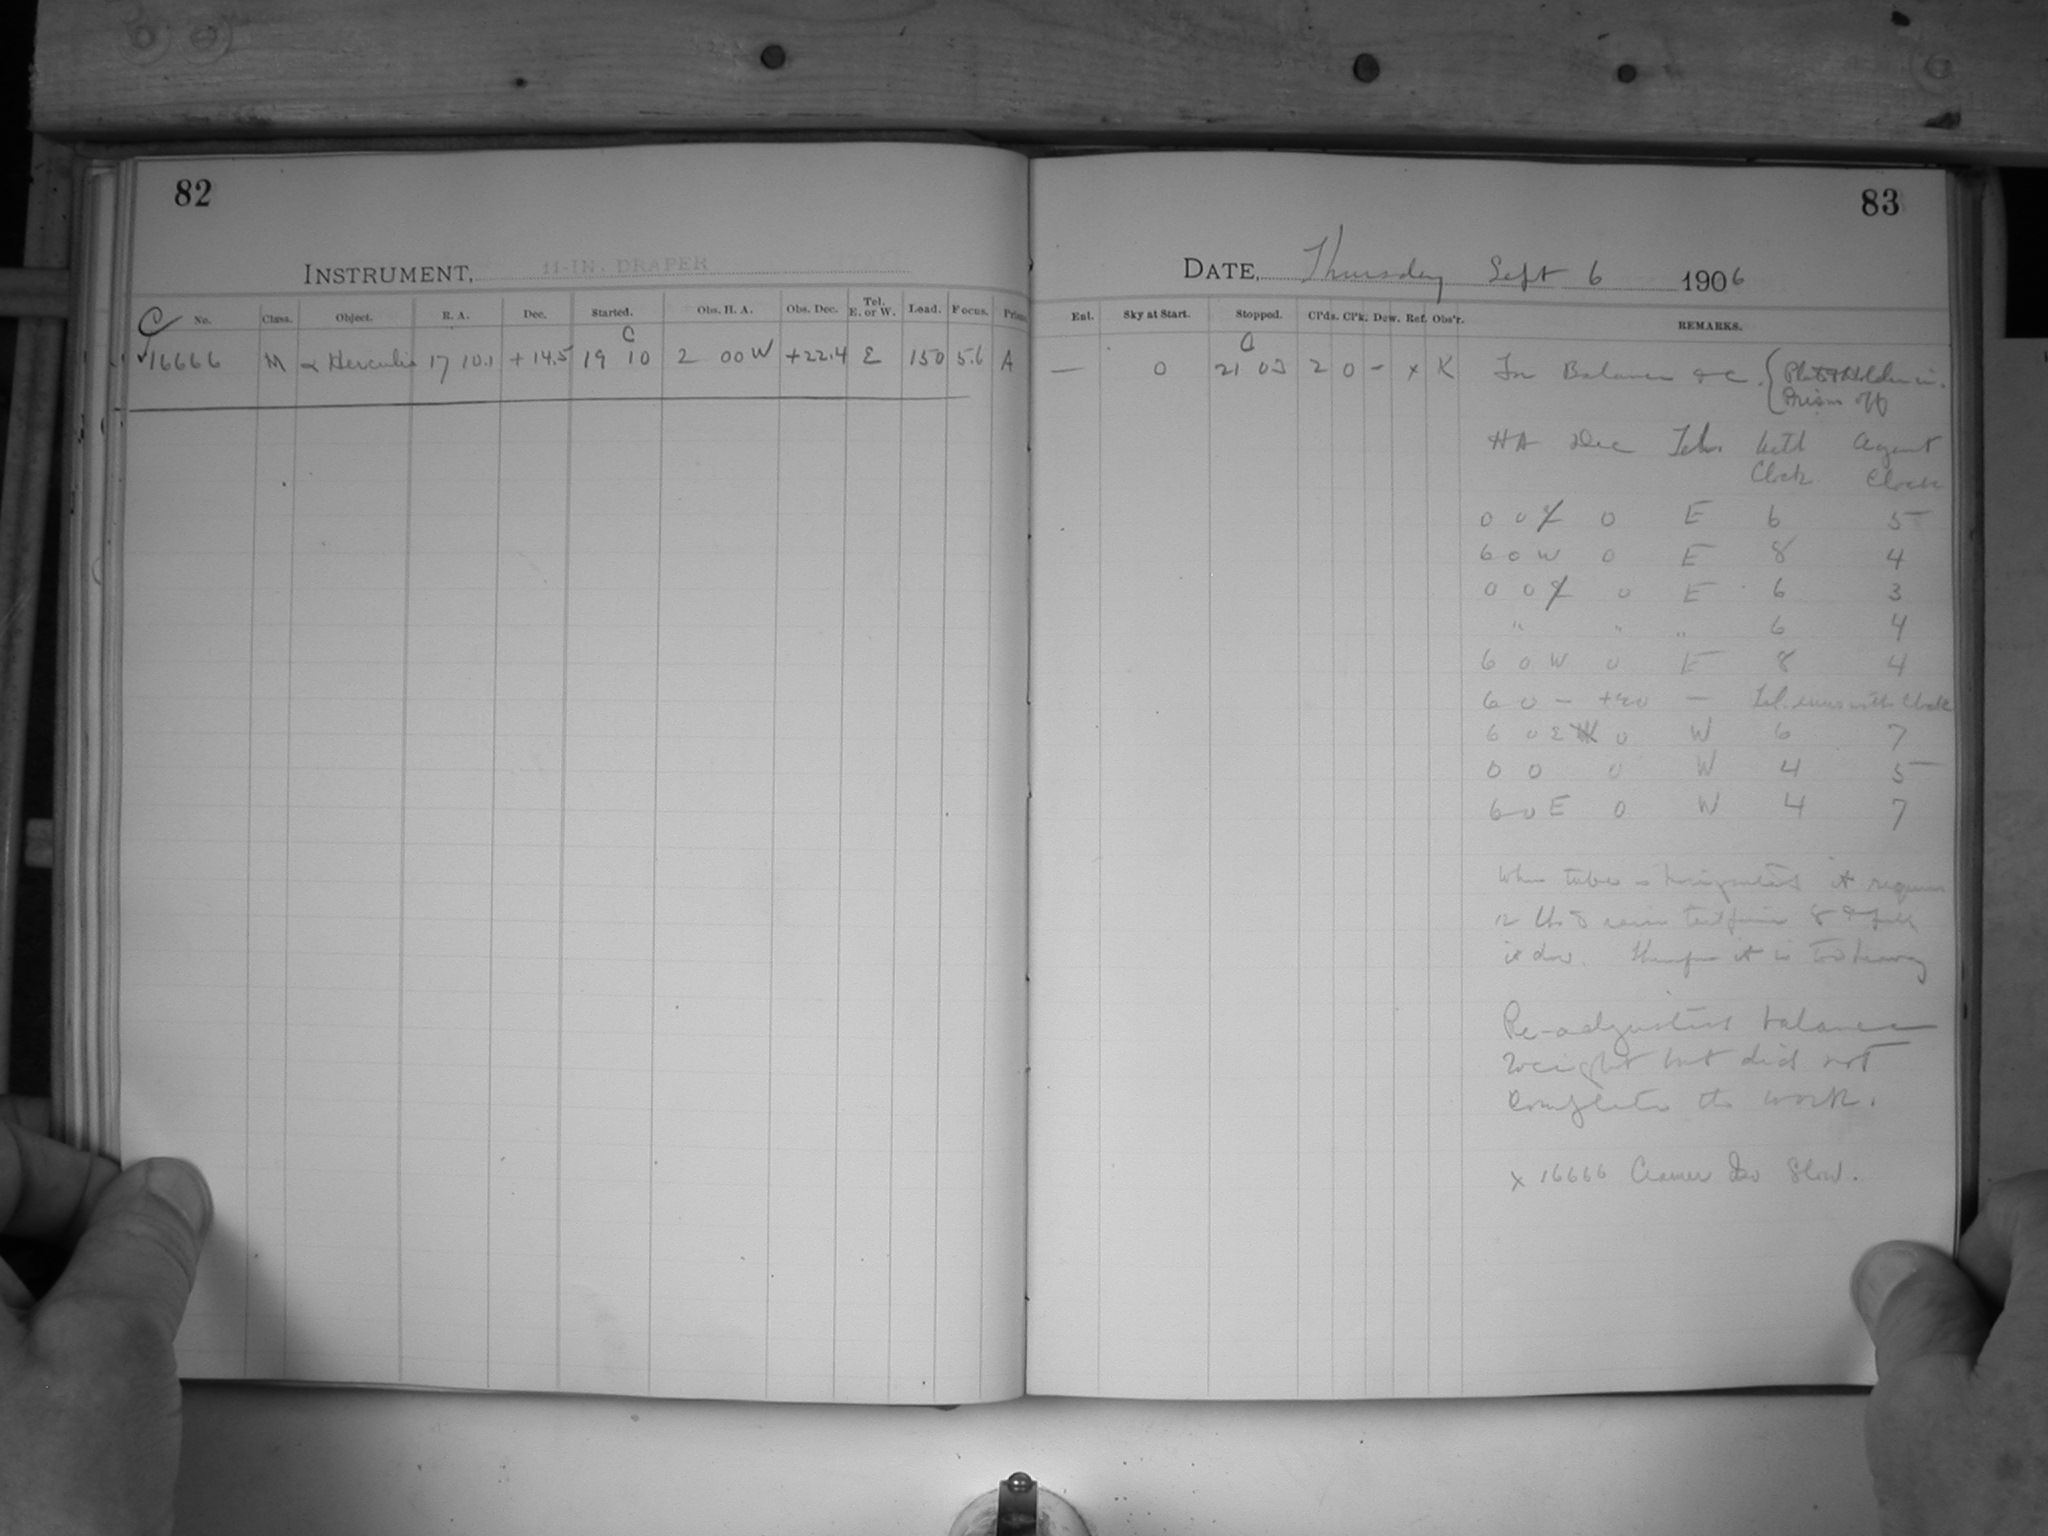 82
INSTRUMENT, 11-IN. DRAPER
C No. Class. Object. R. A. Dec. Started. Obs. H. A. Obs. Dec. Tel. E. or W. Load. Focus. Prism
C
✓16666 M α Herculis 17 10.1 +14.5 19 10 2 00 W +22.4 E 150 5.6 A
83
DATE, Thursday Sept 6 1906
Enl. Sky at Start. Stopped. Cl'ds. Cl'k. Dew. Ref. Obs'r. REMARKS.
C
— 0 21 03 2 0 - x K For Balance &c. { Plate Holder in.
Prism off
HA Dec Tel. With Clock Against Clock
0 0 0 E 6 5
6 0 W 0 E 8 4
0 0 0 E 6 3
" " " 6 4
6 0 W 0 E 8 4
6 0 – – Tel. with Clock
6 0 E W 0 W 6 7
0 0 0 W 4 5
6 0 E 0 W 4 7
When tube is it requires
12 lbs 8 &
is too heavy
Re-adjusting balance
weight but did not
complete the work.
x 16666 Cramer Iso Slow.